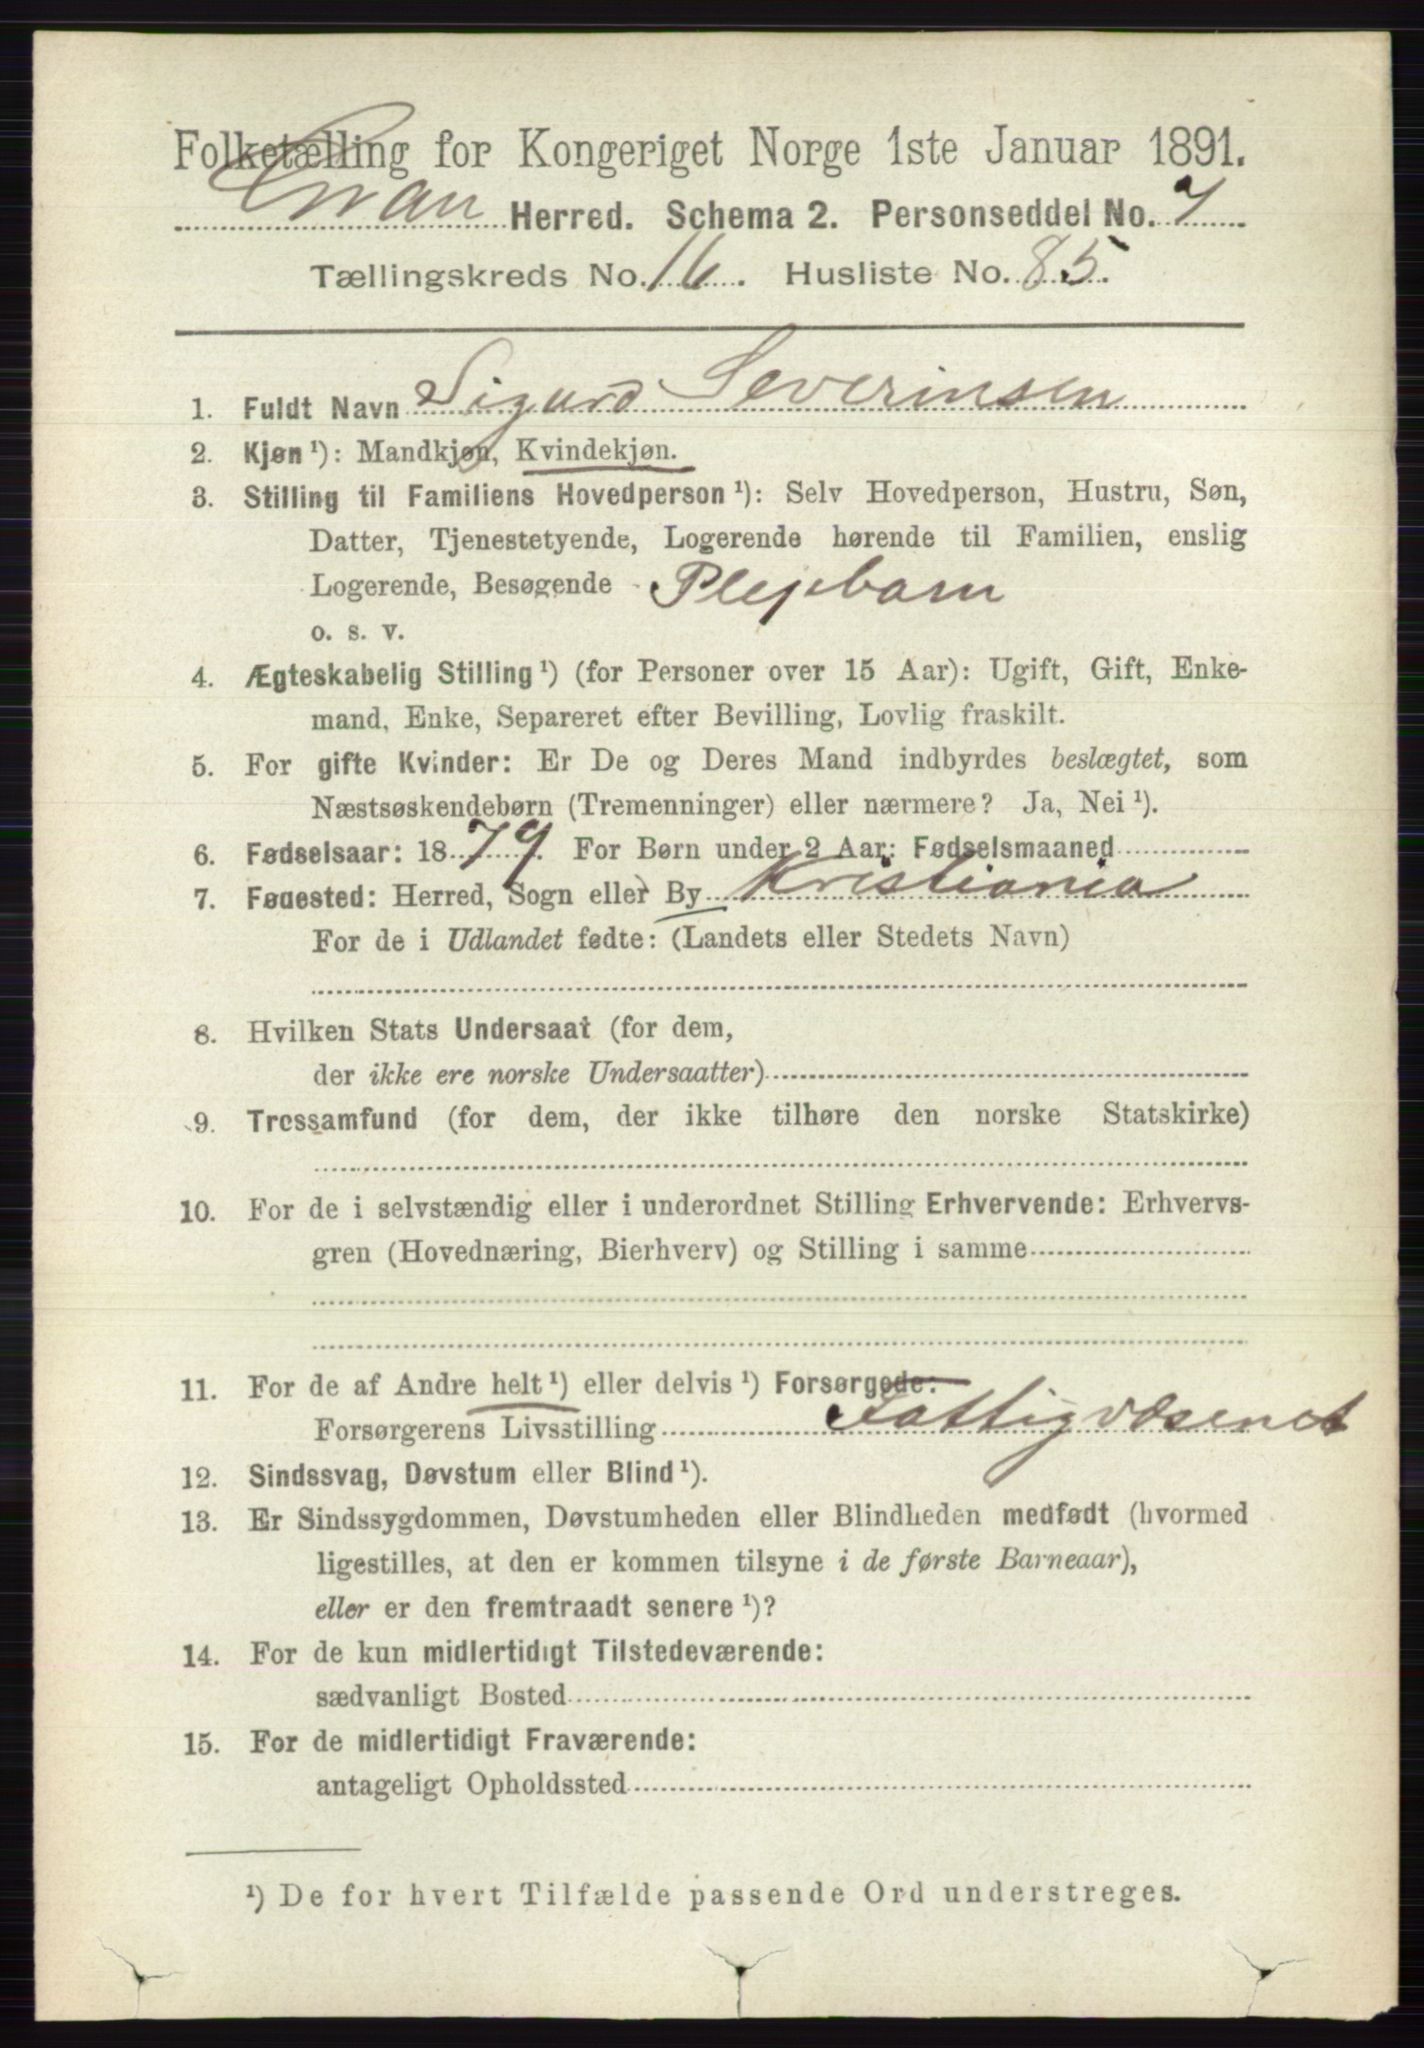 Folketælling for Kongeriget Norge 1ste Januar 1891.
Gran Herred. Schema 2. Personseddel No. 7
Tællingskreds No. 16. Husliste No. 85.
1. Fuldt Navn Sigurd Severinsen
2. Kjøn ¹): Mandkjøn, Kvindekjøn.
3. Stilling til Familiens Hovedperson ¹): Selv Hovedperson, Hustru, Søn,
Datter, Tjenestetyende, Logerende hørende til Familien, enslig
Logerende, Besøgende Plejebarn
o. s. v.
4. Ægteskabelig Stilling ¹) (for Personer over 15 Aar): Ugift, Gift, Enke-
mand, Enke, Separeret efter Bevilling, Lovlig fraskilt.
5. For gifte Kvinder: Er De og Deres Mand indbyrdes beslægtet, som
Næstsøskendebørn (Tremenninger) eller nærmere? Ja, Nei ¹).
6. Fødselsaar: 1879. For Børn under 2 Aar: Fødselsmaaned
7. Fødested: Herred, Sogn eller By Kristiania
For de i Udlandet fødte: (Landets eller Stedets Navn)
8. Hvilken Stats Undersaat (for dem,
der ikke ere norske Undersaatter)
9. Trossamfund (for dem, der ikke tilhøre den norske Statskirke)
10. For de i selvstændig eller i underordnet Stilling Erhvervende: Erhvervs-
gren (Hovednæring, Bierhverv) og Stilling i samme
11. For de af Andre helt ¹) eller delvis ¹) Forsørgede:
Forsørgerens Livsstilling Fattigvæsenet
12. Sindssvag, Døvstum eller Blind ¹).
13. Er Sindssygdommen, Døvstumheden eller Blindheden medfødt (hvormed
ligestilles, at den er kommen tilsyne i de første Barneaar),
eller er den fremtraadt senere ¹)?
14. For de kun midlertidigt Tilstedeværende:
sædvanligt Bosted
15. For de midlertidigt Fraværende:
antageligt Opholdssted
¹) De for hvert Tilfælde passende Ord understreges.